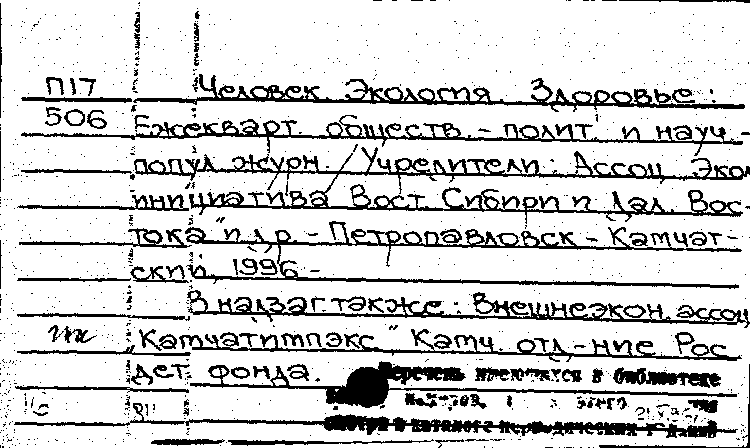 П17 Человек. Экология. Здоровье:
506 Ежекварт. обществ.-полит. и науч.-
попул. журн. / Учредители: Ассоц. "Экол
инициатива Вост. Сибири и Дал. Вос-
тока" и др. - Петропавловск-Камчат-
ский, 1996 -
В надзаг. также: Внешнеэкон. ассоц
"Камчатимпэкс", Камч. отд-ние Рос
дет. фонда.
Перечень имеющихся в библиотеке
смотри в каталоге периодических изданий